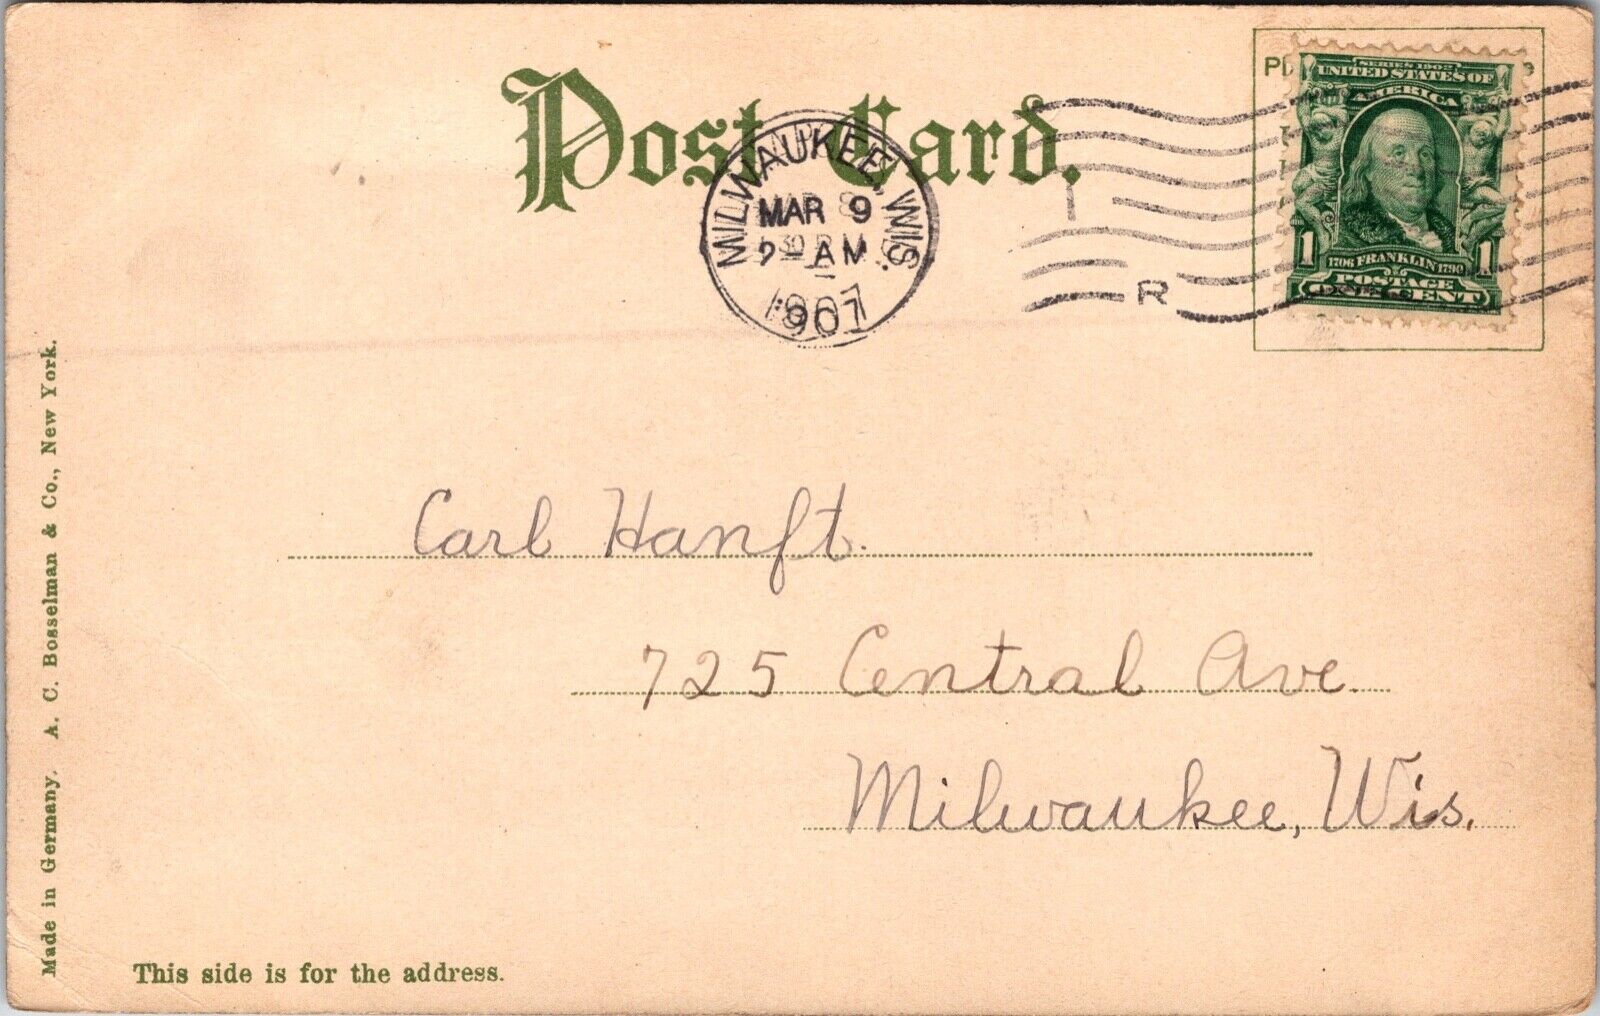 Post Card.
MILWAUKEE, WIS.
MAR 9
2 AM
1907
R
SERIES 1902
UNITED STATES OF
AMERICA
1 1706 FRANKLIN 1790 1
POSTAGE
ONE CENT
Carl Hanft.
725 Central Ave.
Milwaukee, Wis.
Made in Germany. A. C. Bosselman & Co., New York.
This side is for the address.